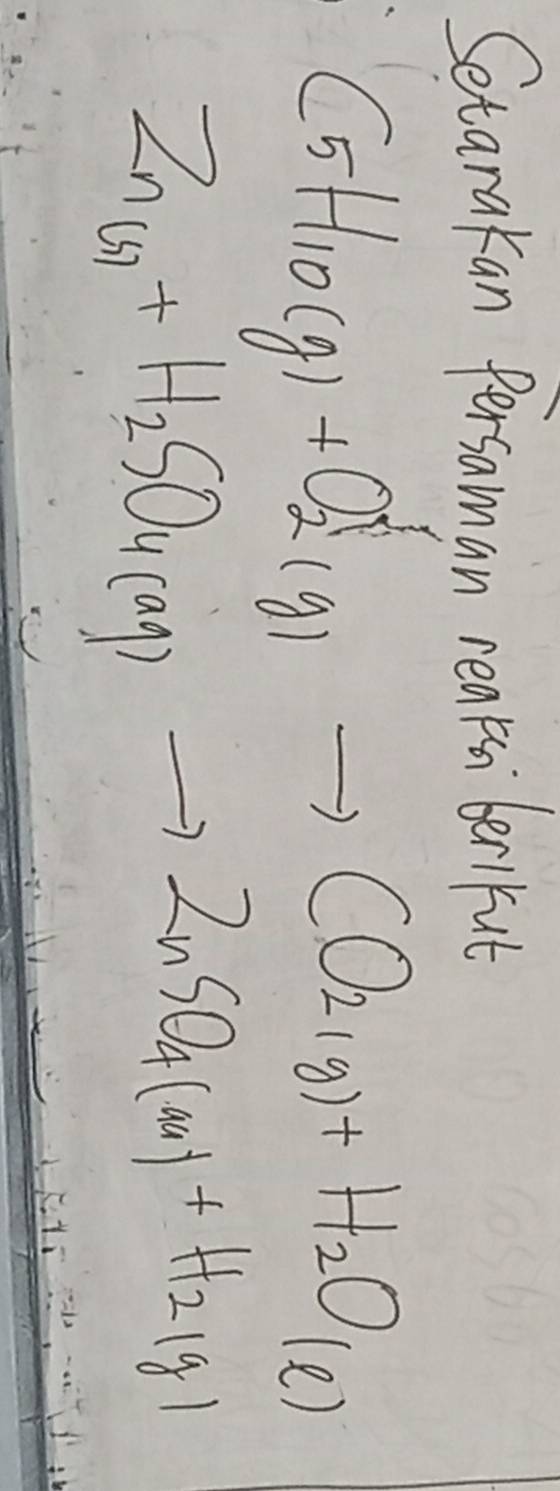 Setarakan Persaman reaksi berikut
C5H10(g) + O2(g) → CO2(g) + H2O(l)
Zn(s) + H2SO4(aq) → ZnSO4(aq) + H2(g)